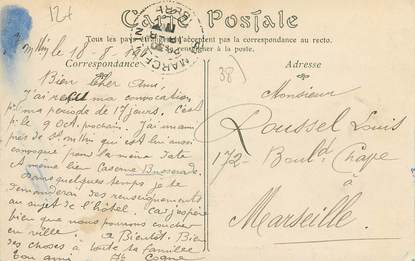 124
Carte Postale
Tous les pays étrangers n'acceptent pas la correspondance au recto.
à la poste.
Correspondance
Adresse
38)
le 18-8
Bien cher Ami,
J'ai reçu ma convocation
pr ma période de 17 jours. C'est
pr le 9 Oct. prochain. J'ai un ami
près de qui est lui aussi
convoqué pour la même date
et même lieu Caserne
Dans quelques temps je te
demanderai des renseignements
au sujet de l'hôtel. Car j'espère
bien que nous pourrons coucher
en ville. A Bientôt. Bien
des choses à toute ta famille
ton ami
Monsieur
Roussel Louis
172 - Boul.d Chave
à
Marseille.